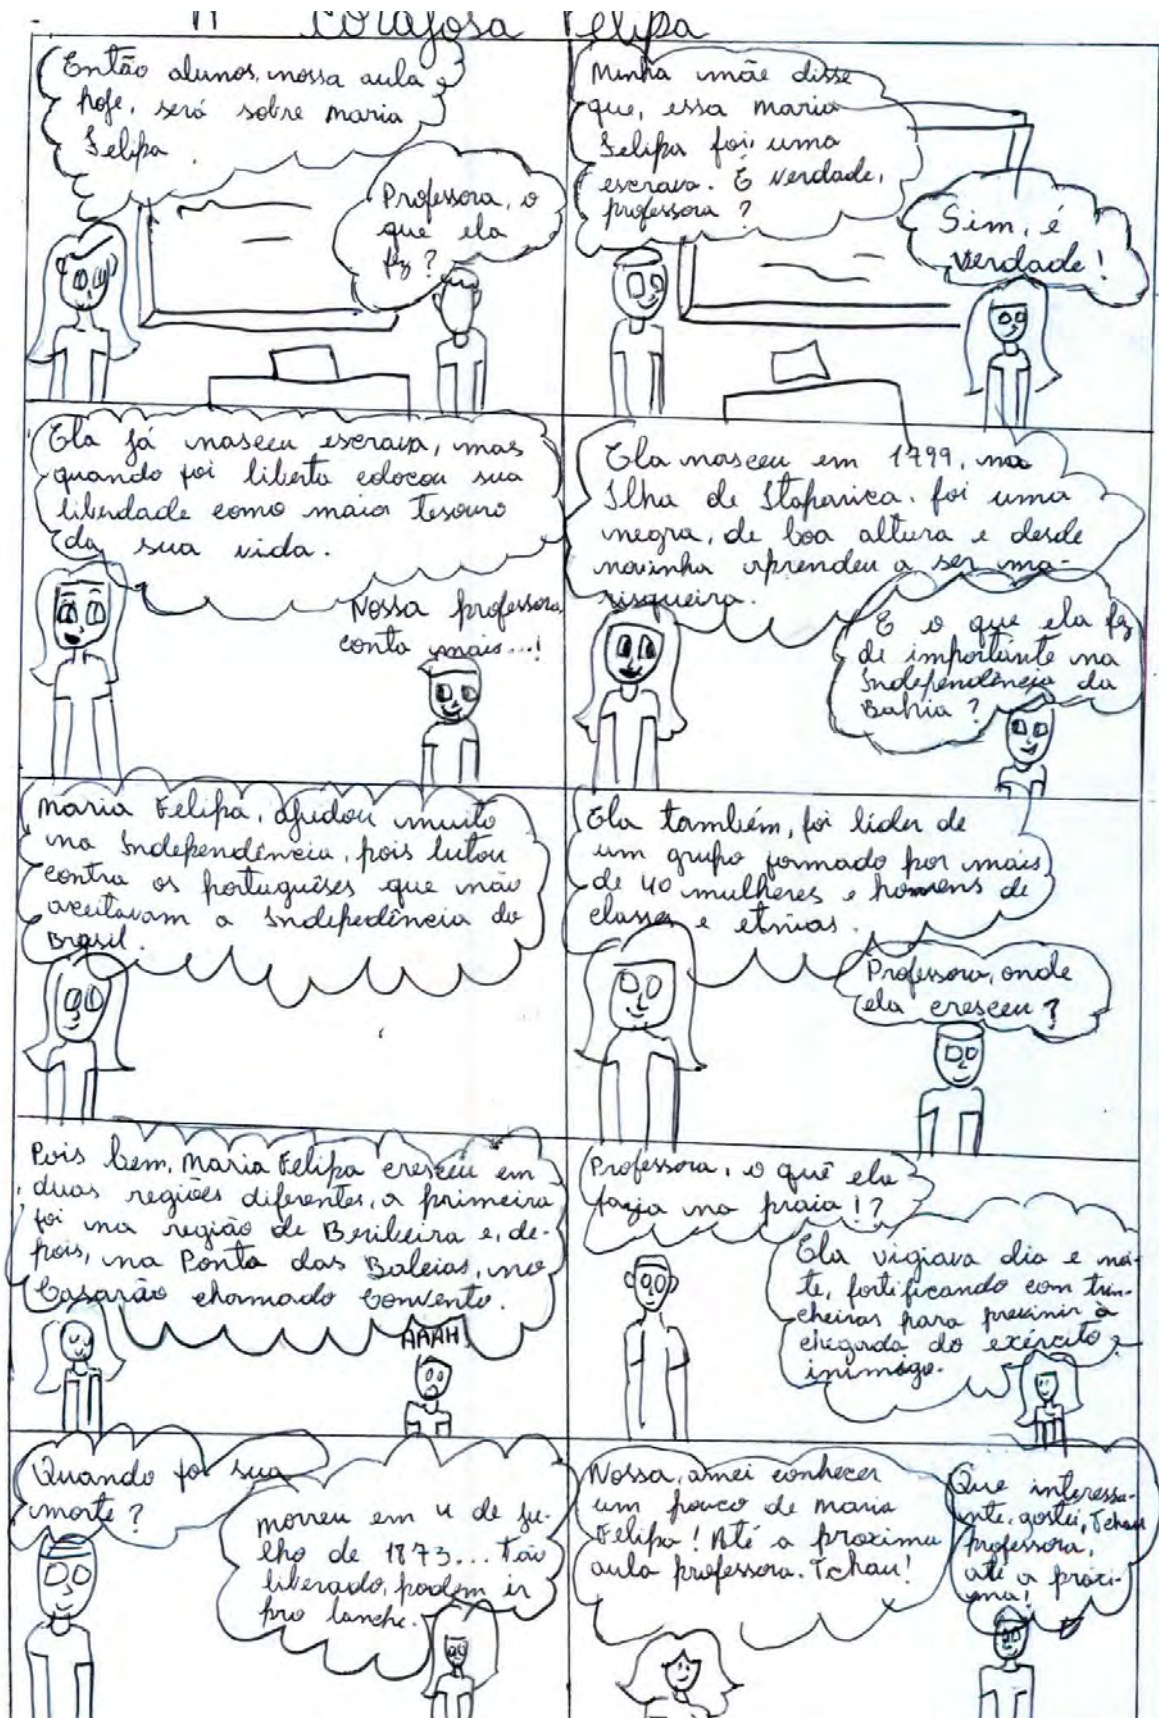 A corajosa Felipa
Então alunos, nossa aula
hoje, será sobre maria
Felipa.
Professora, o
que ela
fez?
Minha mãe disse
que, essa maria
Felipa foi uma
escrava. É verdade,
professora?
Sim, é
verdade!
Ela já nasceu escrava, mas
quando foi liberta colocou sua
liberdade como maior tesouro
da sua vida.
Nossa professora,
conta mais...!
Ela nasceu em 1799, na
Ilha de Itaparica. foi uma
negra, de boa altura e desde
novinha aprendeu a ser ma-
risqueira.
E o que ela fez
de importante na
Independência da
Bahia?
Maria Felipa, ajudou muito
na Independência, pois lutou
contra os portuguêses que não
aceitavam a Indepedência do
Brasil.
Ela também, foi líder de
um grupo formado por mais
de 40 mulheres e homens de
classes e etnias.
Professora, onde
ela cresceu?
Pois bem, Maria Felipa cresceu em
duas regiões diferentes, a primeira
foi na região de Beribeira e, de-
pois, na Ponta das Baleias, no
Casarão chamado Convento.
AAAH!
Professora, o quê ela
fazia na praia!?
Ela vigiava dia e noi-
te, fortificando com trin-
cheiras para previnir à
chegada do exército
inimigo.
Quando foi sua
morte?
morreu em 4 de ju-
lho de 1873... Tão
liberado, podem ir
pro lanche.
Nossa, amei conhecer
um pouco de maria
Felipa! Até a proxima
aula professora. Tchau!
Que interessa-
nte, gostei, Tchau
professora,
até a próxi-
ma!